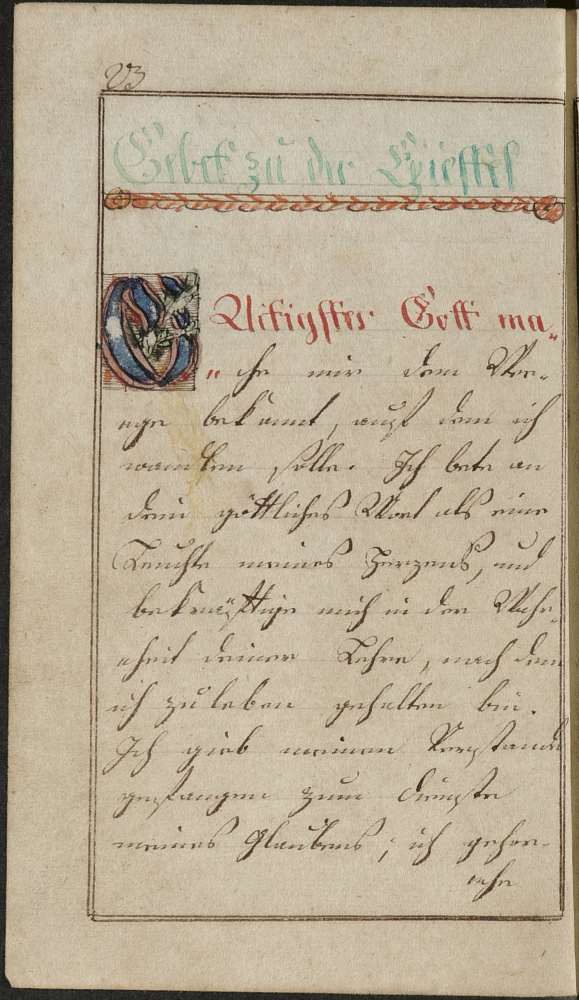 23
Gebet zu der Epistel
Gütigster Gott ma„
„che mir den We„
ege bekannt, auf dem ich
wandlen solle. Ich bete an
dein göttliches Wort als eine
Leuchte meines Herzens, und
bekräftige mich in der Wahr„
„heit deiner Lehre, nach dem
ich zu leben gehalten bin.
Ich gieb meinen Verstande
gefangen zum Dienste
meines Glaubens; ich gehor„